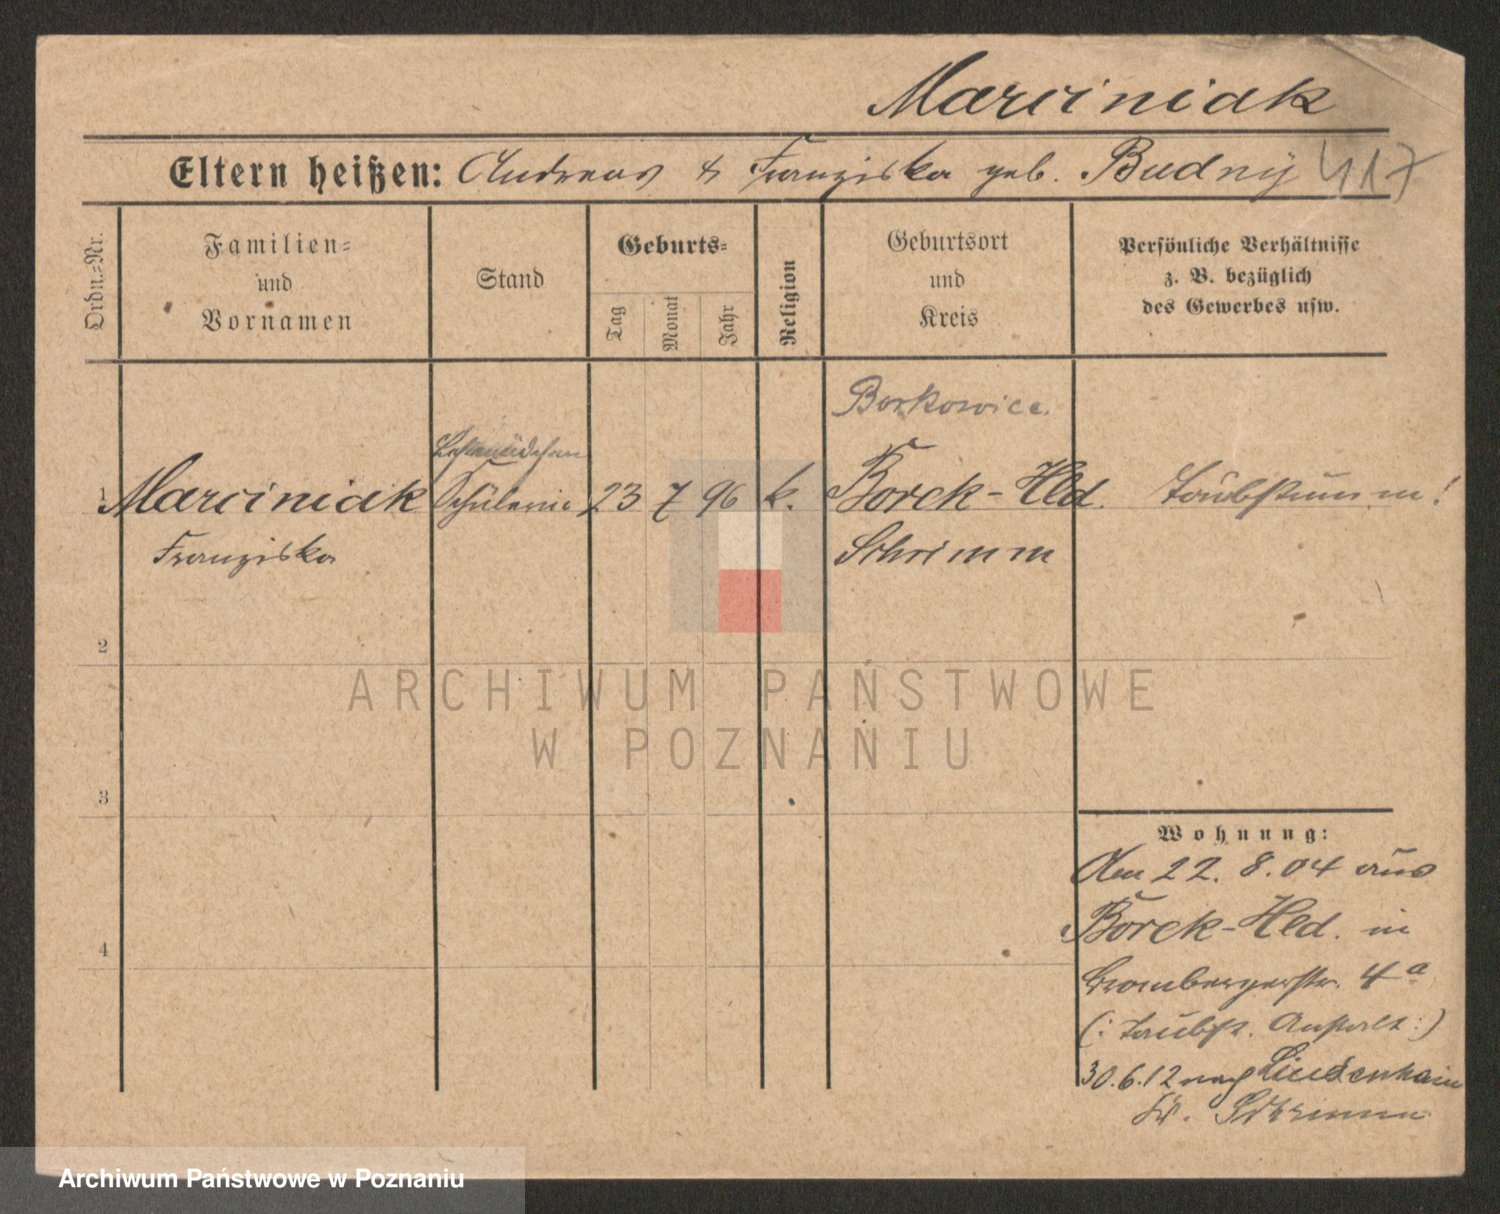 Marciniak
Eltern heißen: Andreas & Franziska geb. Budny 417
Ordn.-Nr.
Familien-
und
Vornamen
Stand
Geburts-
Tag
Monat
Jahr
Religion
Geburtsort
und
Kreis
Persönliche Verhältnisse
z. B. bezüglich
des Gewerbes usw.
Borkowice.
1 Marciniak Schülerin 23 7 96 k. Borek-Hld. Taubstumm!
Franziska Schrimm
2
ARCHIWUM PAŃSTWOWE
W POZNANIU
3
4
Wohnung:
Am 22. 8. 04 aus
Borek-Hld. in
Brombergerstr. 4a
(: Taubst. Anstalt :)
30.6.12 nach Lindenhain
Kr. Schrimm
Archiwum Państwowe w Poznaniu